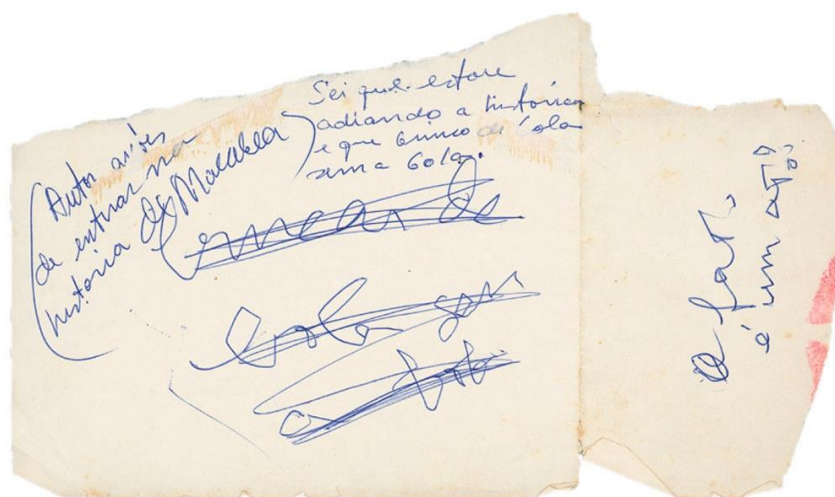 (Autor antes
de entrar na
história de Macabéa)
Sei que estou
adiando a história
e que brinco de bola
sem a bola.
brincar de
bola sem
a bola
O fato
é um ato?